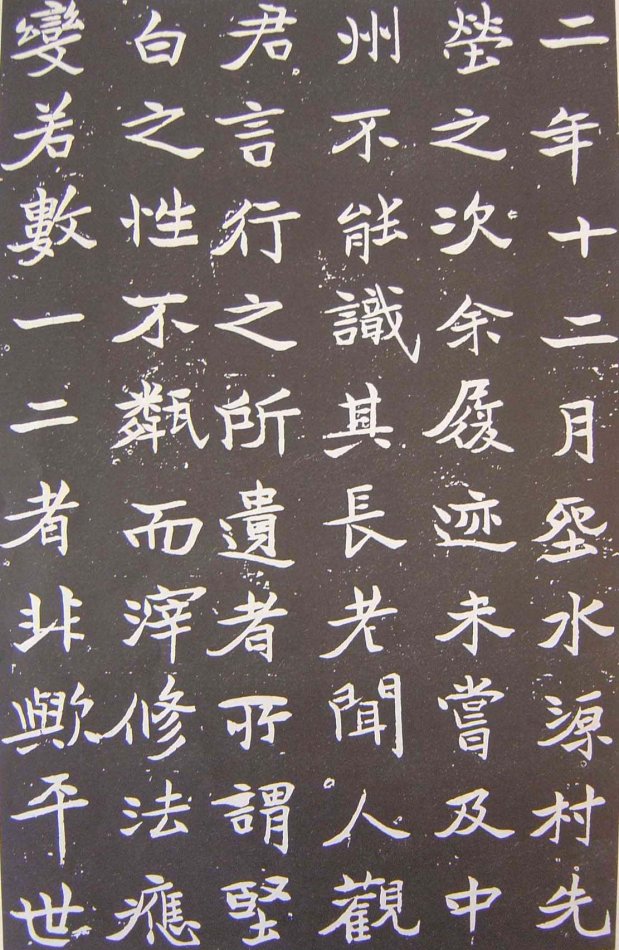 二年十二月水源村先
塋之次余履迹未嘗及中
州不能識其長老聞人觀
君言行之所遺者所謂堅
白之性不甐而滓修法應
變若數一二者非歟平世